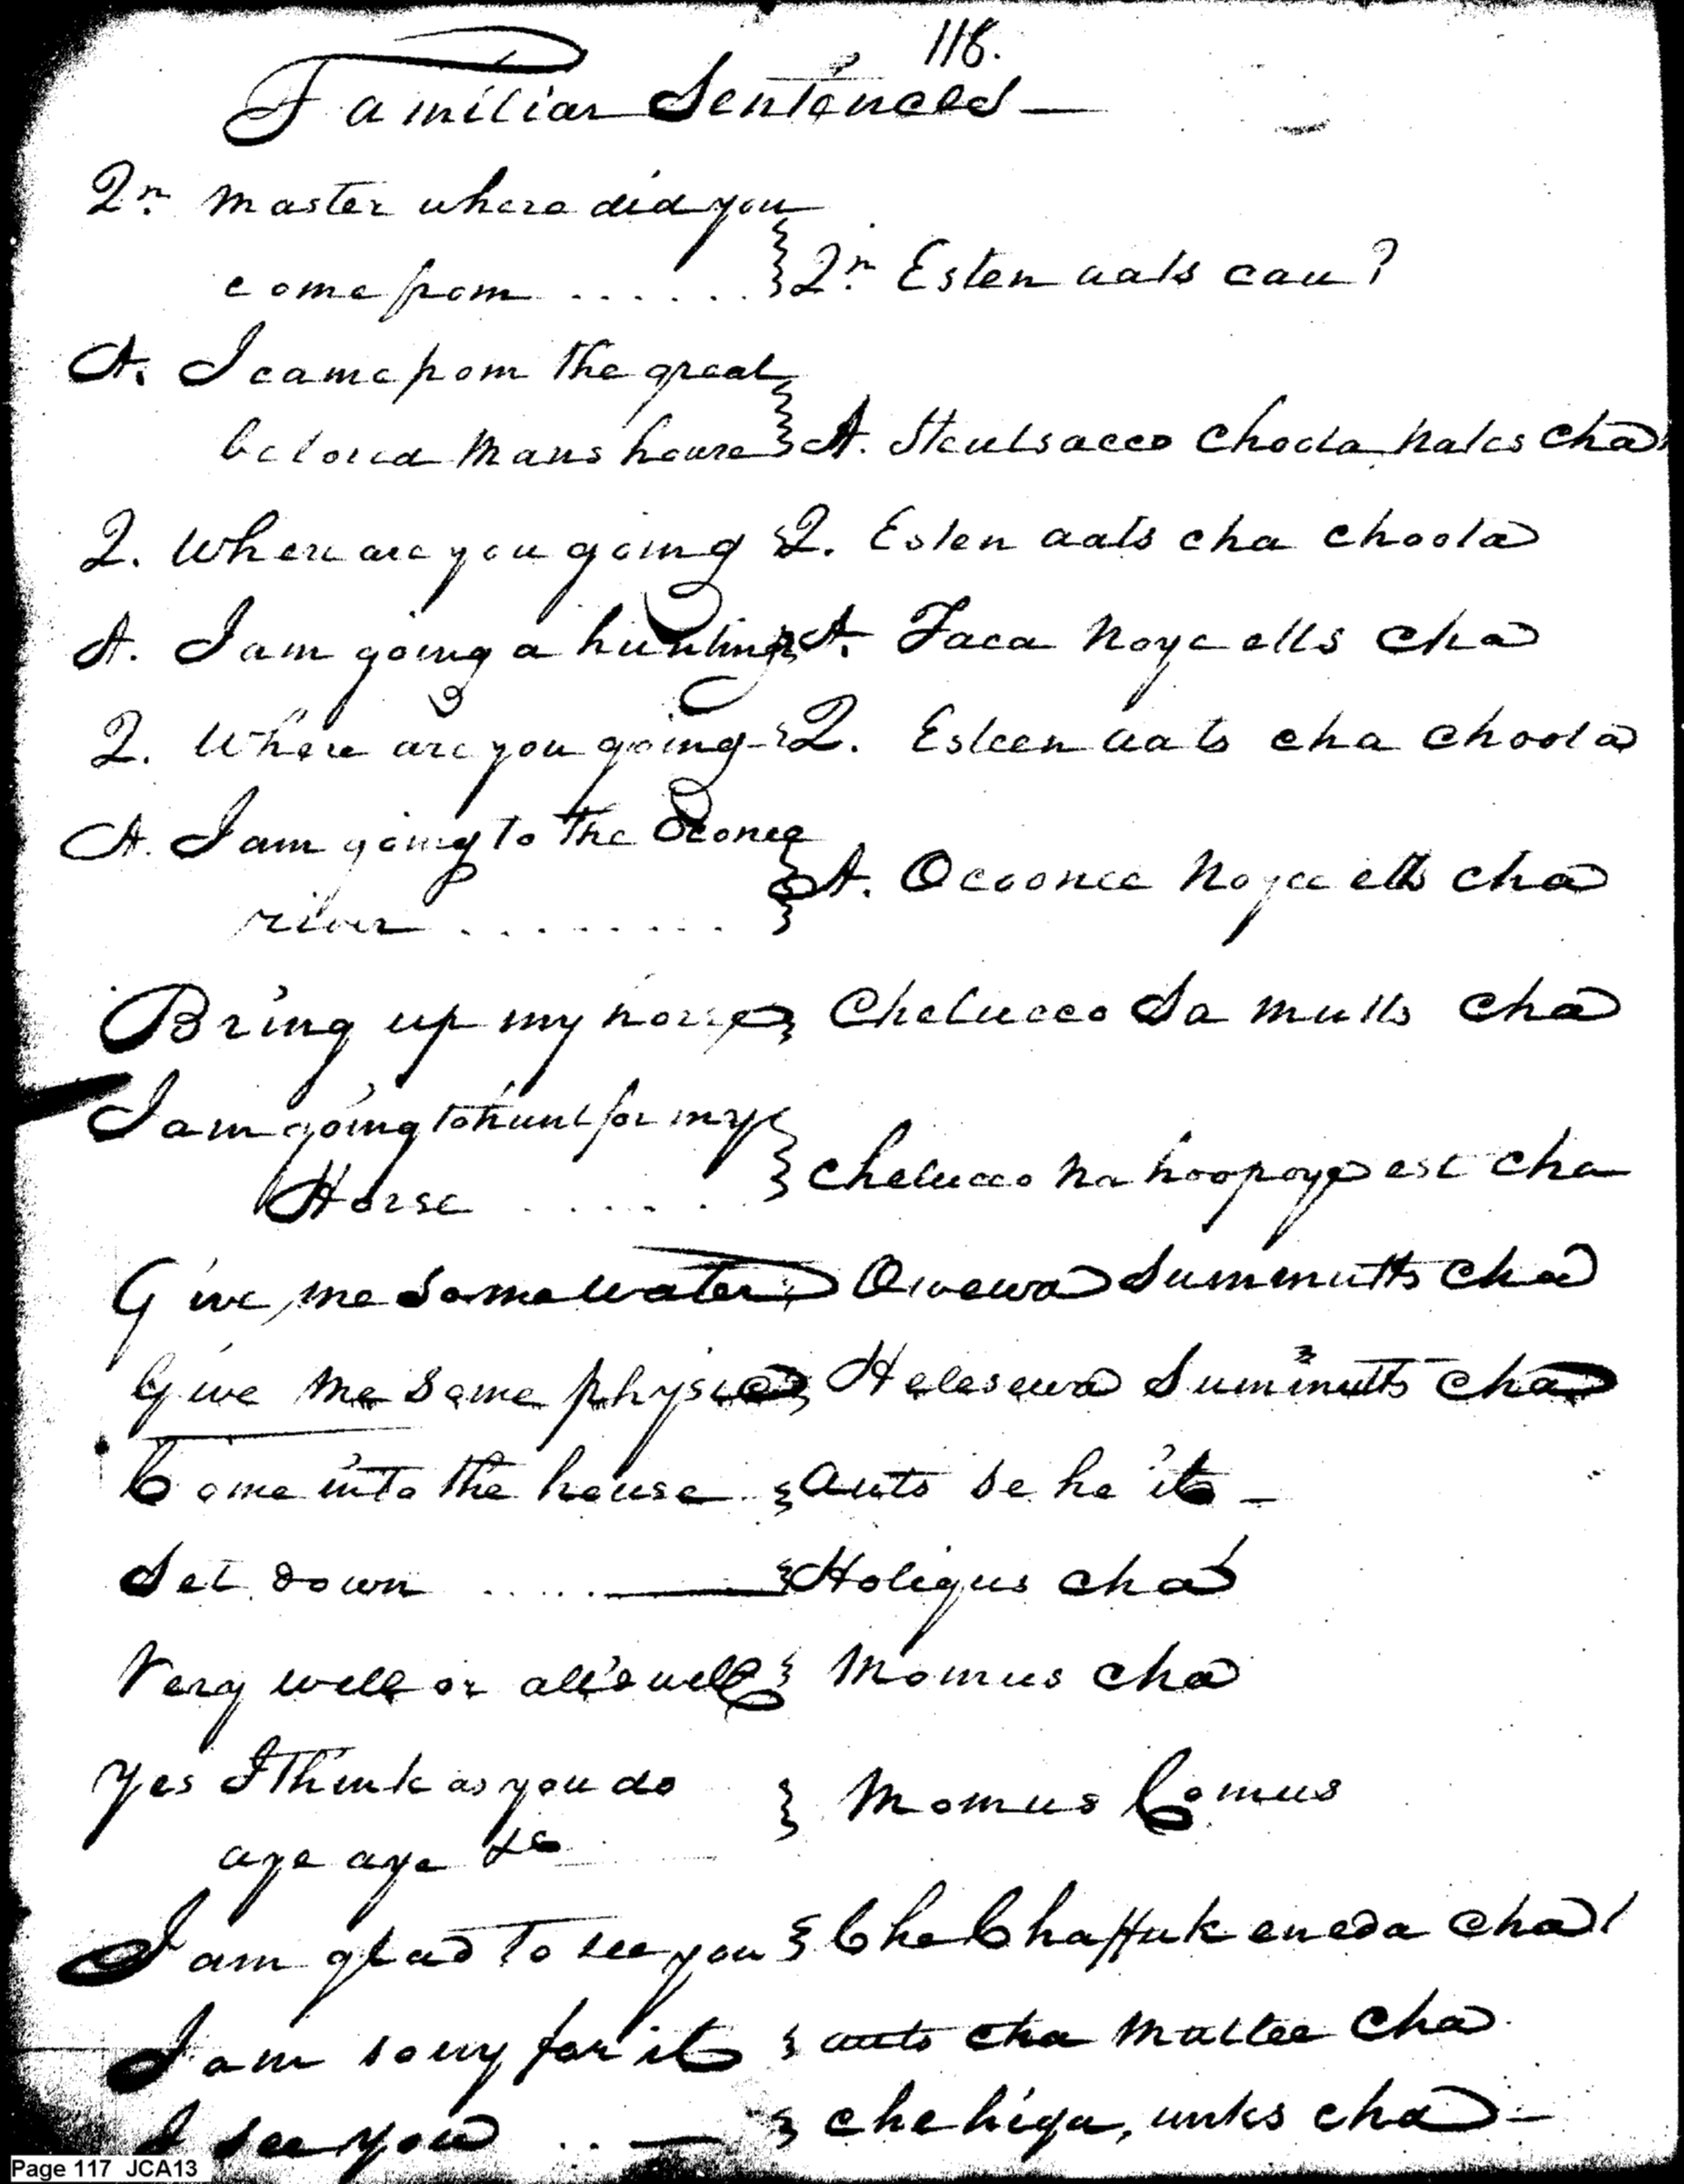 118.
Familiar Sentences —
Qn. Master where did you
come from ...... } Qn. Esten aats cau?
A. I came from the great
beloved Mans house } A. Steutsacco Choola nales cha
Q. Where are you going } Q. Esten aats cha choola
A. I am going a hunting } A. Faca Noye ells cha
Q. Where are you going } Q. Esteen aats cha choola
A. I am going to the Oconee
river ........ } A. Ocoonee Noyee ells cha
Bring up my horse } Chelucco Sa mulls cha
I am going to hunt for my
Horse ...... } Chelucco na hoopoye est cha
Give me some water } Owewa Summutts cha
Give me some physic } Helesewa Summutts cha
Come into the house } auts se he its —
Set down ..... — } Holigus cha
Very well or all's well } Momus cha
Yes I think as you do
aye aye &c } Momus Comus
I am glad to see you } Che Chaffuk eneda cha
I am sorry for it } auts cha Mattee Cha
I see you .. — } Chehiga, unks cha —
Page 117 JCA13